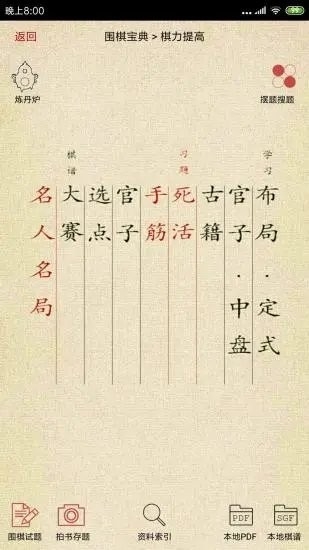 晚上8:00
返回
围棋宝典 > 棋力提高
炼丹炉
摆题搜题
学习
布局.定式
官子.中盘
古籍
习题
死活
手筋
官子
选点
棋谱
大赛
名人名局
围棋试题
拍书存题
资料索引
PDF
本地PDF
SGF
本地棋谱